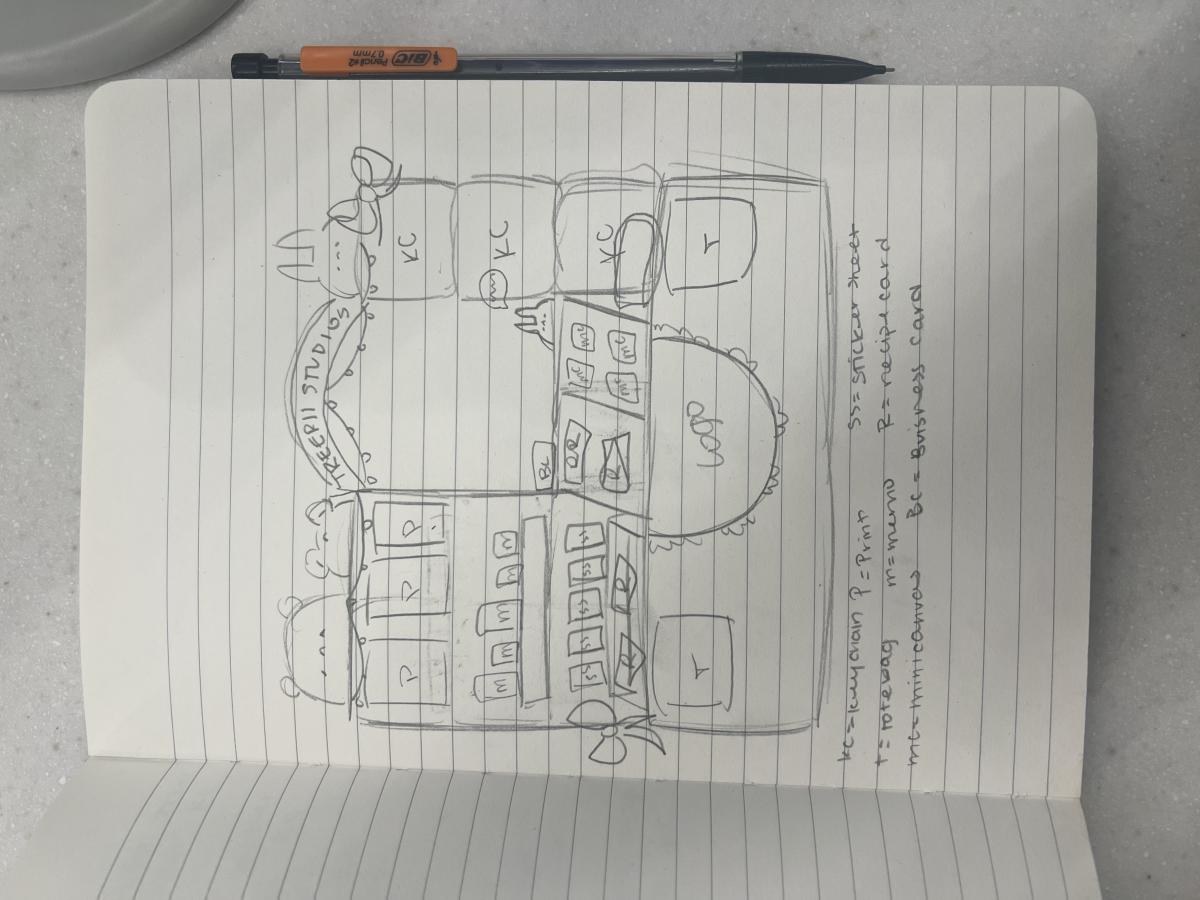 TREEPII STUDIOS
P P P KC
m m m m m KC
BC
SS SS SS SS SS QR mc mc KC
R R R mc mc
T Logo T
KC = keychain P = Print SS = sticker sheet
T = totebag m = memo R = recipe card
mc = minicanvas BC = Buisness card
BIC
Pencil #2
0.7mm